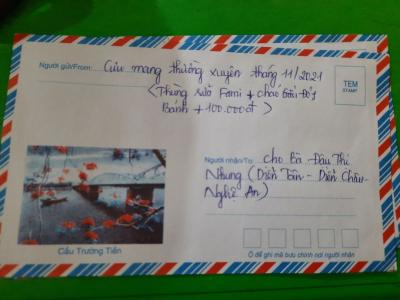 Người gửi/From: Cưu mang thường xuyên tháng 11/2021
(Thùng sữa Fami + cháo Gấu Đỏ,
Bánh + 100.000đ)
TEM
STAMP
Người nhận/To: cho Bà Đậu Thị
Nhung (Diễn Tân - Diễn Châu-
Nghệ An)
Cầu Trường Tiền
Ô để ghi mã bưu chính nơi người nhận